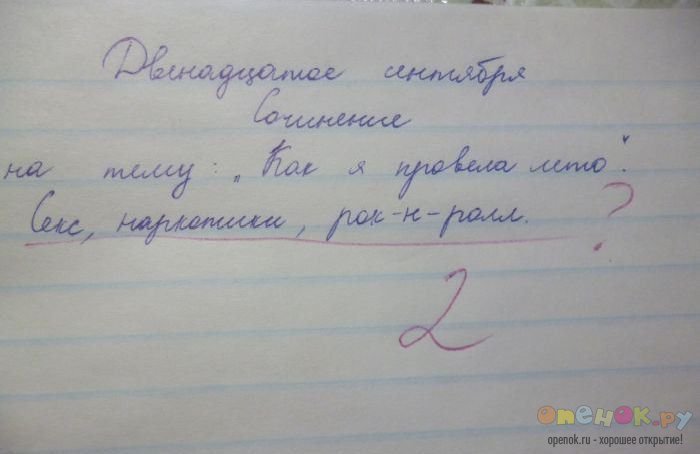 Двенадцатое сентября
Сочинение
на тему: „Как я провела лето".
Секс, наркотики, рок-н-ролл. ?
2
опенок.ру
openok.ru - хорошее открытие!